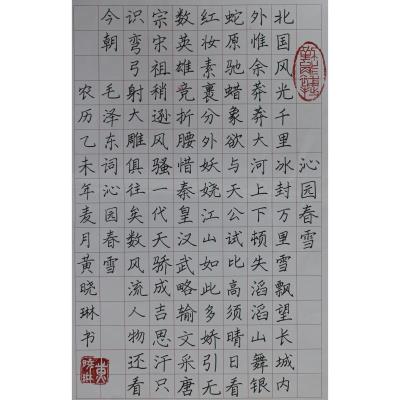 沁园春雪
北国风光千里冰封万里雪飘望长城内
外惟余莽莽大河上下顿失滔滔山舞银
蛇原驰蜡象欲与天公试比高须晴日看
红妆素裹分外妖娆江山如此多娇引无
数英雄竞折腰惜秦皇汉武略输文采唐
宗宋祖稍逊风骚一代天骄成吉思汗只
识弯弓射大雕俱往矣数风流人物还看
今朝 毛泽东词沁园春雪
农历乙未年麦月黄晓琳书